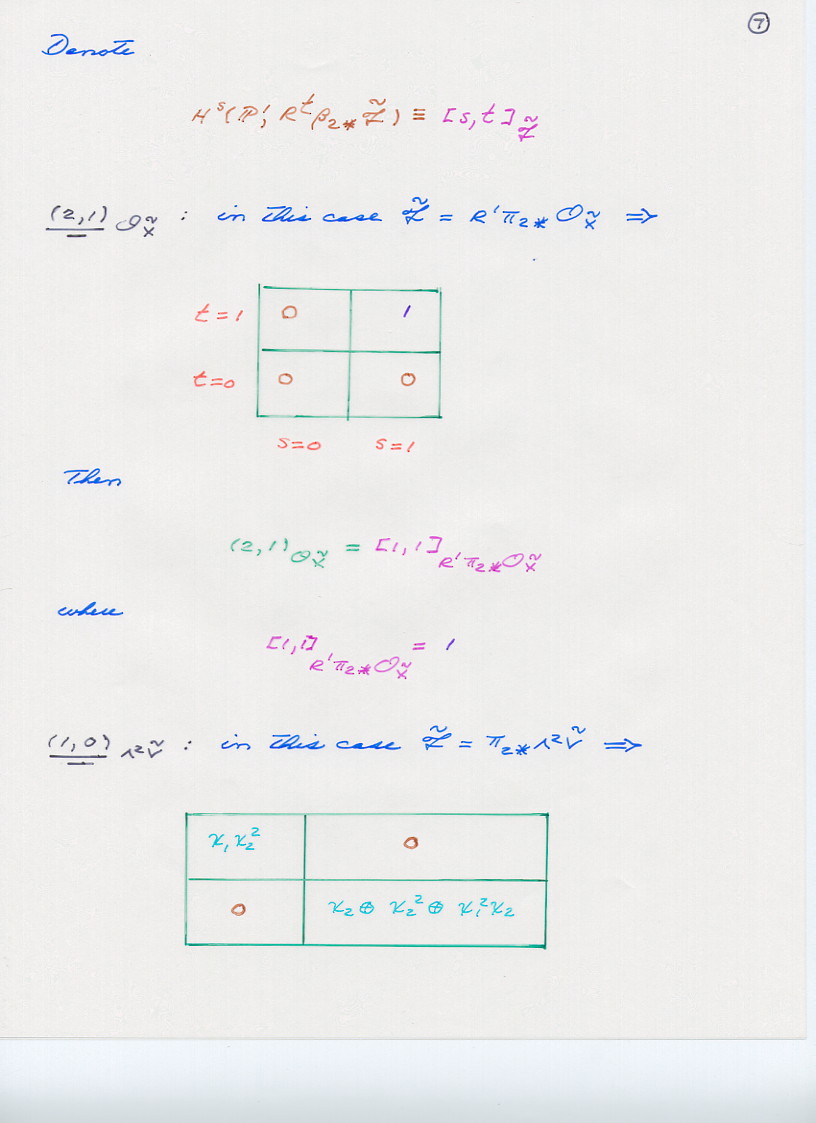 ⑦
Denote
Hˢ(ℙ¹, Rᵗβ₂⁎ℱ̃) ≡ [s,t]_ℱ̃
(2,1)_𝒪_X̃ : in this case ℱ̃ = R¹π₂⁎𝒪_X̃ ⇒
t=1 0 1
t=0 0 0
s=0 s=1
Then
(2,1)_𝒪_X̃ = [1,1]_R¹π₂⁎𝒪_X̃
where
[1,1]_R¹π₂⁎𝒪_X̃ = 1
(1,0)_Λ²Ṽ : in this case ℱ̃ = π₂⁎Λ²Ṽ ⇒
χ₁χ₂² 0
0 χ₂ ⊕ χ₂² ⊕ χ₁²χ₂